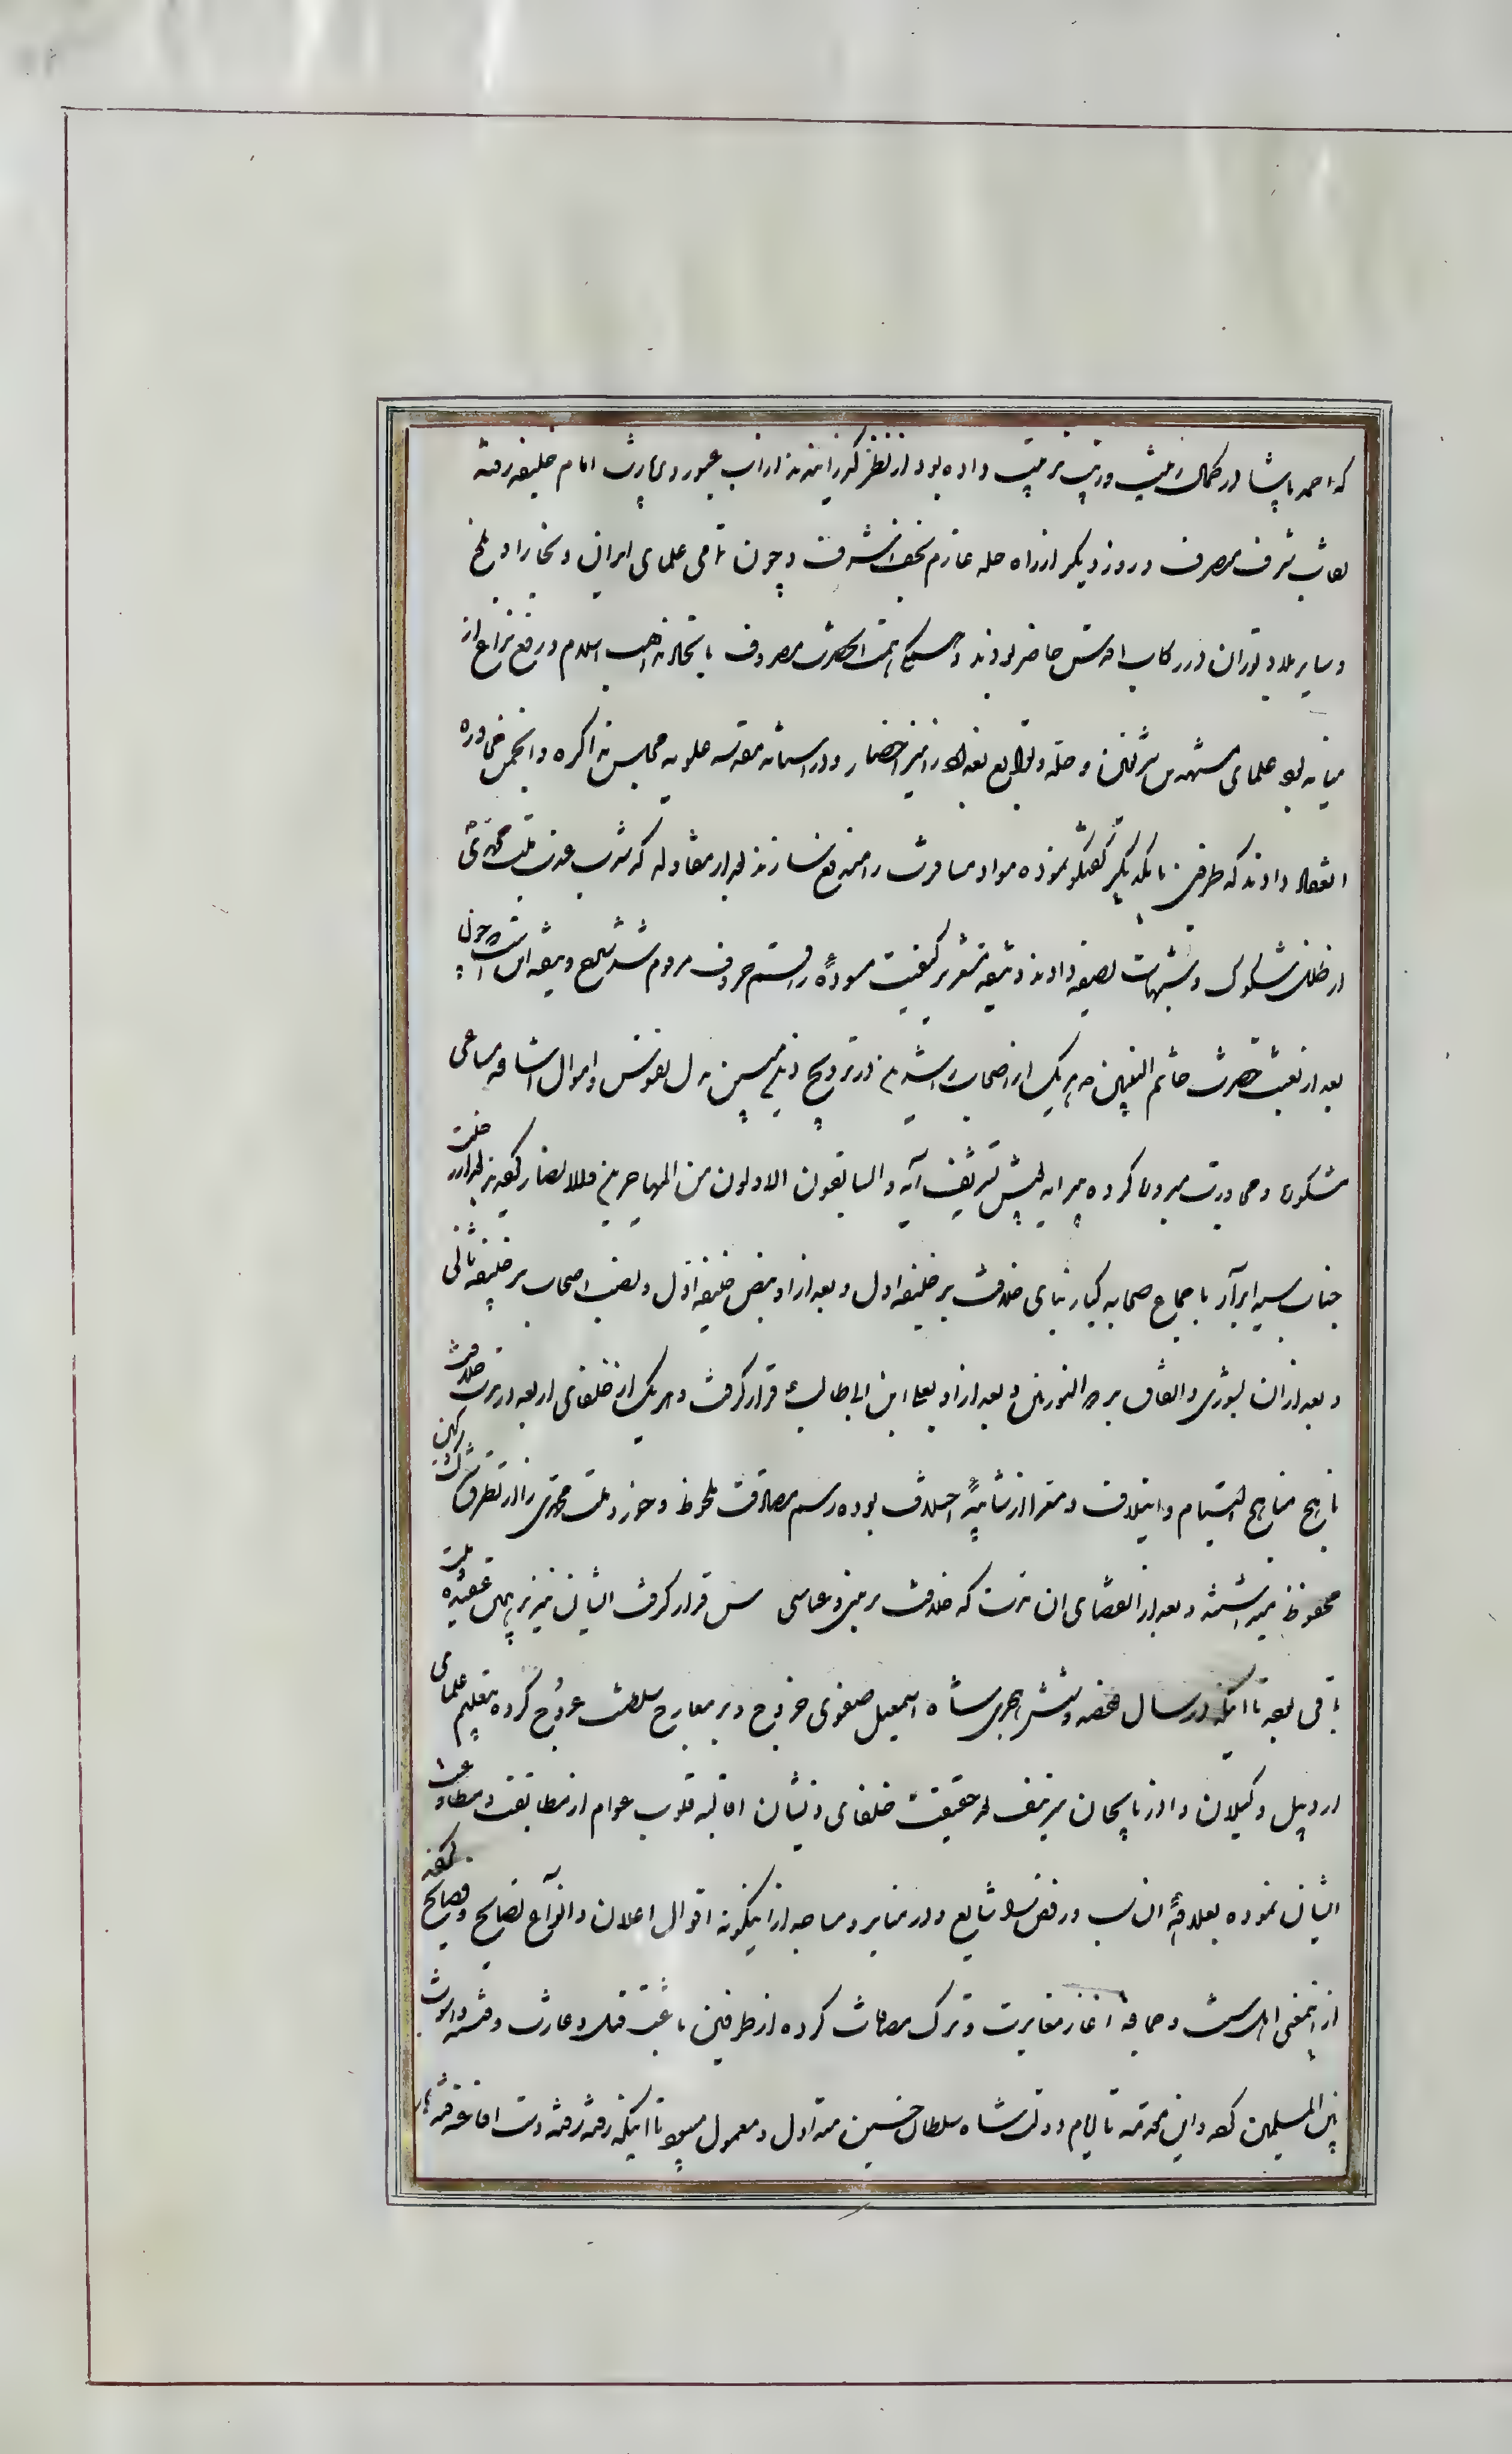 که احمد پاشا در کمال زینت و زیب ترتیب داده بود از نظر گذرانیدند از آب عبور و بزیارت امام خلیفه رفته
بعتاب شرف مصرف و روز دیکر از راه حله عازم نجف اشرف و چون تمامی علمای ایران و بخارا و بلخ
و سایر بلاد توران در رکاب اقدس حاضر بودند و همکی همت انحضرت مصروف باتحاد مذاهب اسلام و رفع نزاع از
میانه بود علمای مشهدین شریفین و حله و توابع بغداد را نیز احضار و در آستانه مقدسه علویه مجلس مذاکره و انجمن محاوره
انعقاد دادند که طرفین با یکدیکر کفتکو نموده مواد منافرت را مندفع سازند لهذا مقاوله که مشرب عذب ملت محمدی
از ظلل شکوک و شبهات تصفیه دادند وثیقه مشعر بر کیفیت مسوده راقم حروف مرقوم شد شرح وثیقه این است چون
بعد از بعثت حضرت خاتم النبیین ص هر یک از اصحاب راشدین در ترویج دین مبین بذل نفوس و اموال اشاقه مساعی
مشکوره و مجاهدت مبرور کرده پیرایه پوش تشریف آیه والسابقون الاولون من المهاجرین والانصار کردیدند بعد از رحلت
جناب سید ابرار باجماع صحابه کبار بنای خلافت بر خلیفه اول و بعد از او بنص خلیفه اول و نصب اصحاب بر خلیفه ثانی
و بعد از ان بشوری و اتفاق بر ذوالنورین و بعد از او بعلی ابن ابی طالب ع قرار کرفت و هر یک از خلفای اربعه در مدت خلافت
ناهج مناهج التیام و ایتلاف و معرا از شایبه اختلاف بوده رسم مصادقت ملحوظ و حوزه ملت محمدی را از تطرق شرک و کین
محفوظ میداشته و بعد از انقضای ان مدت که خلافت بر بنی عباس قرار کرفت ایشان نیز بر همان عقیده ملت
باقی بوده تا اینکه در سال نهصد و شش هجری شاه اسمعیل صفوی خروج و بر معارج سلطنت عروج کرده بتعلیم علمای
اردبیل و کیلان و اذربایجان تزییف حقیقت خلفای ذیشان اقالبه قلوب عوام از مطابقت و مطاوعت
ایشان نموده بعلاقه ان سب و رفض شایع و در منابر و مساجد از اینکونه اقوال اعلان و انواع نصایح و فضایح کفته
از اینمعنی اهل سنت و جماعت آغاز مغایرت و ترک مصافات کرده از طرفین باعث قتل و غارت و فتنه و آشوب
بین المسلمین کشته و این مقدمه تا ایام دولت شاه سلطان حسین متداول و معمول میبود تا اینکه رفته رفته دست افاغنه